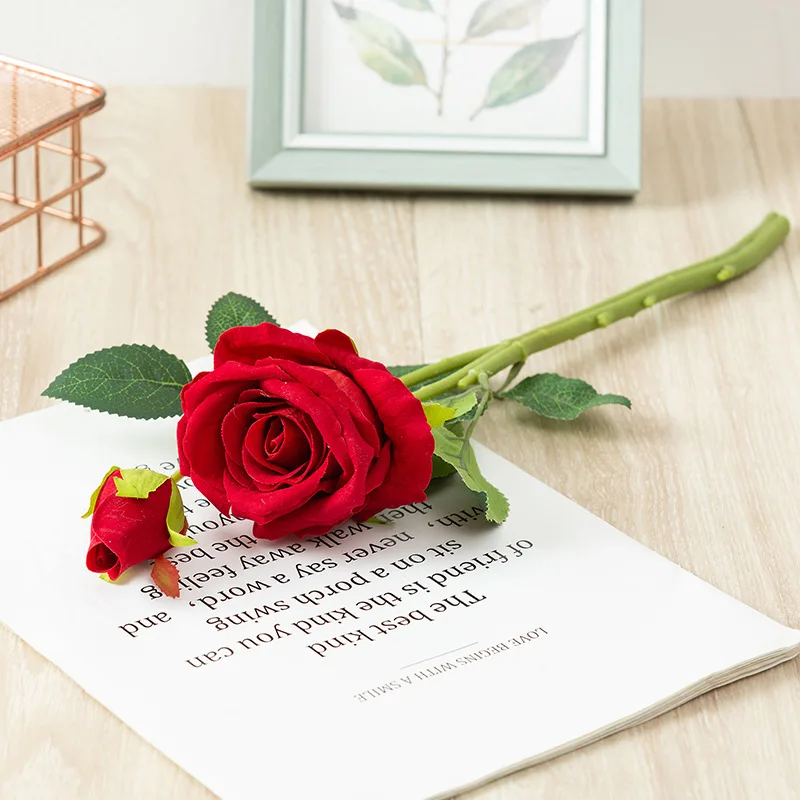 LOVE BEGINS WITH A SMILE
The best kind
of friend is the kind you can
sit on a porch swing
with, never say a word, and
then walk away feeling
the best
you